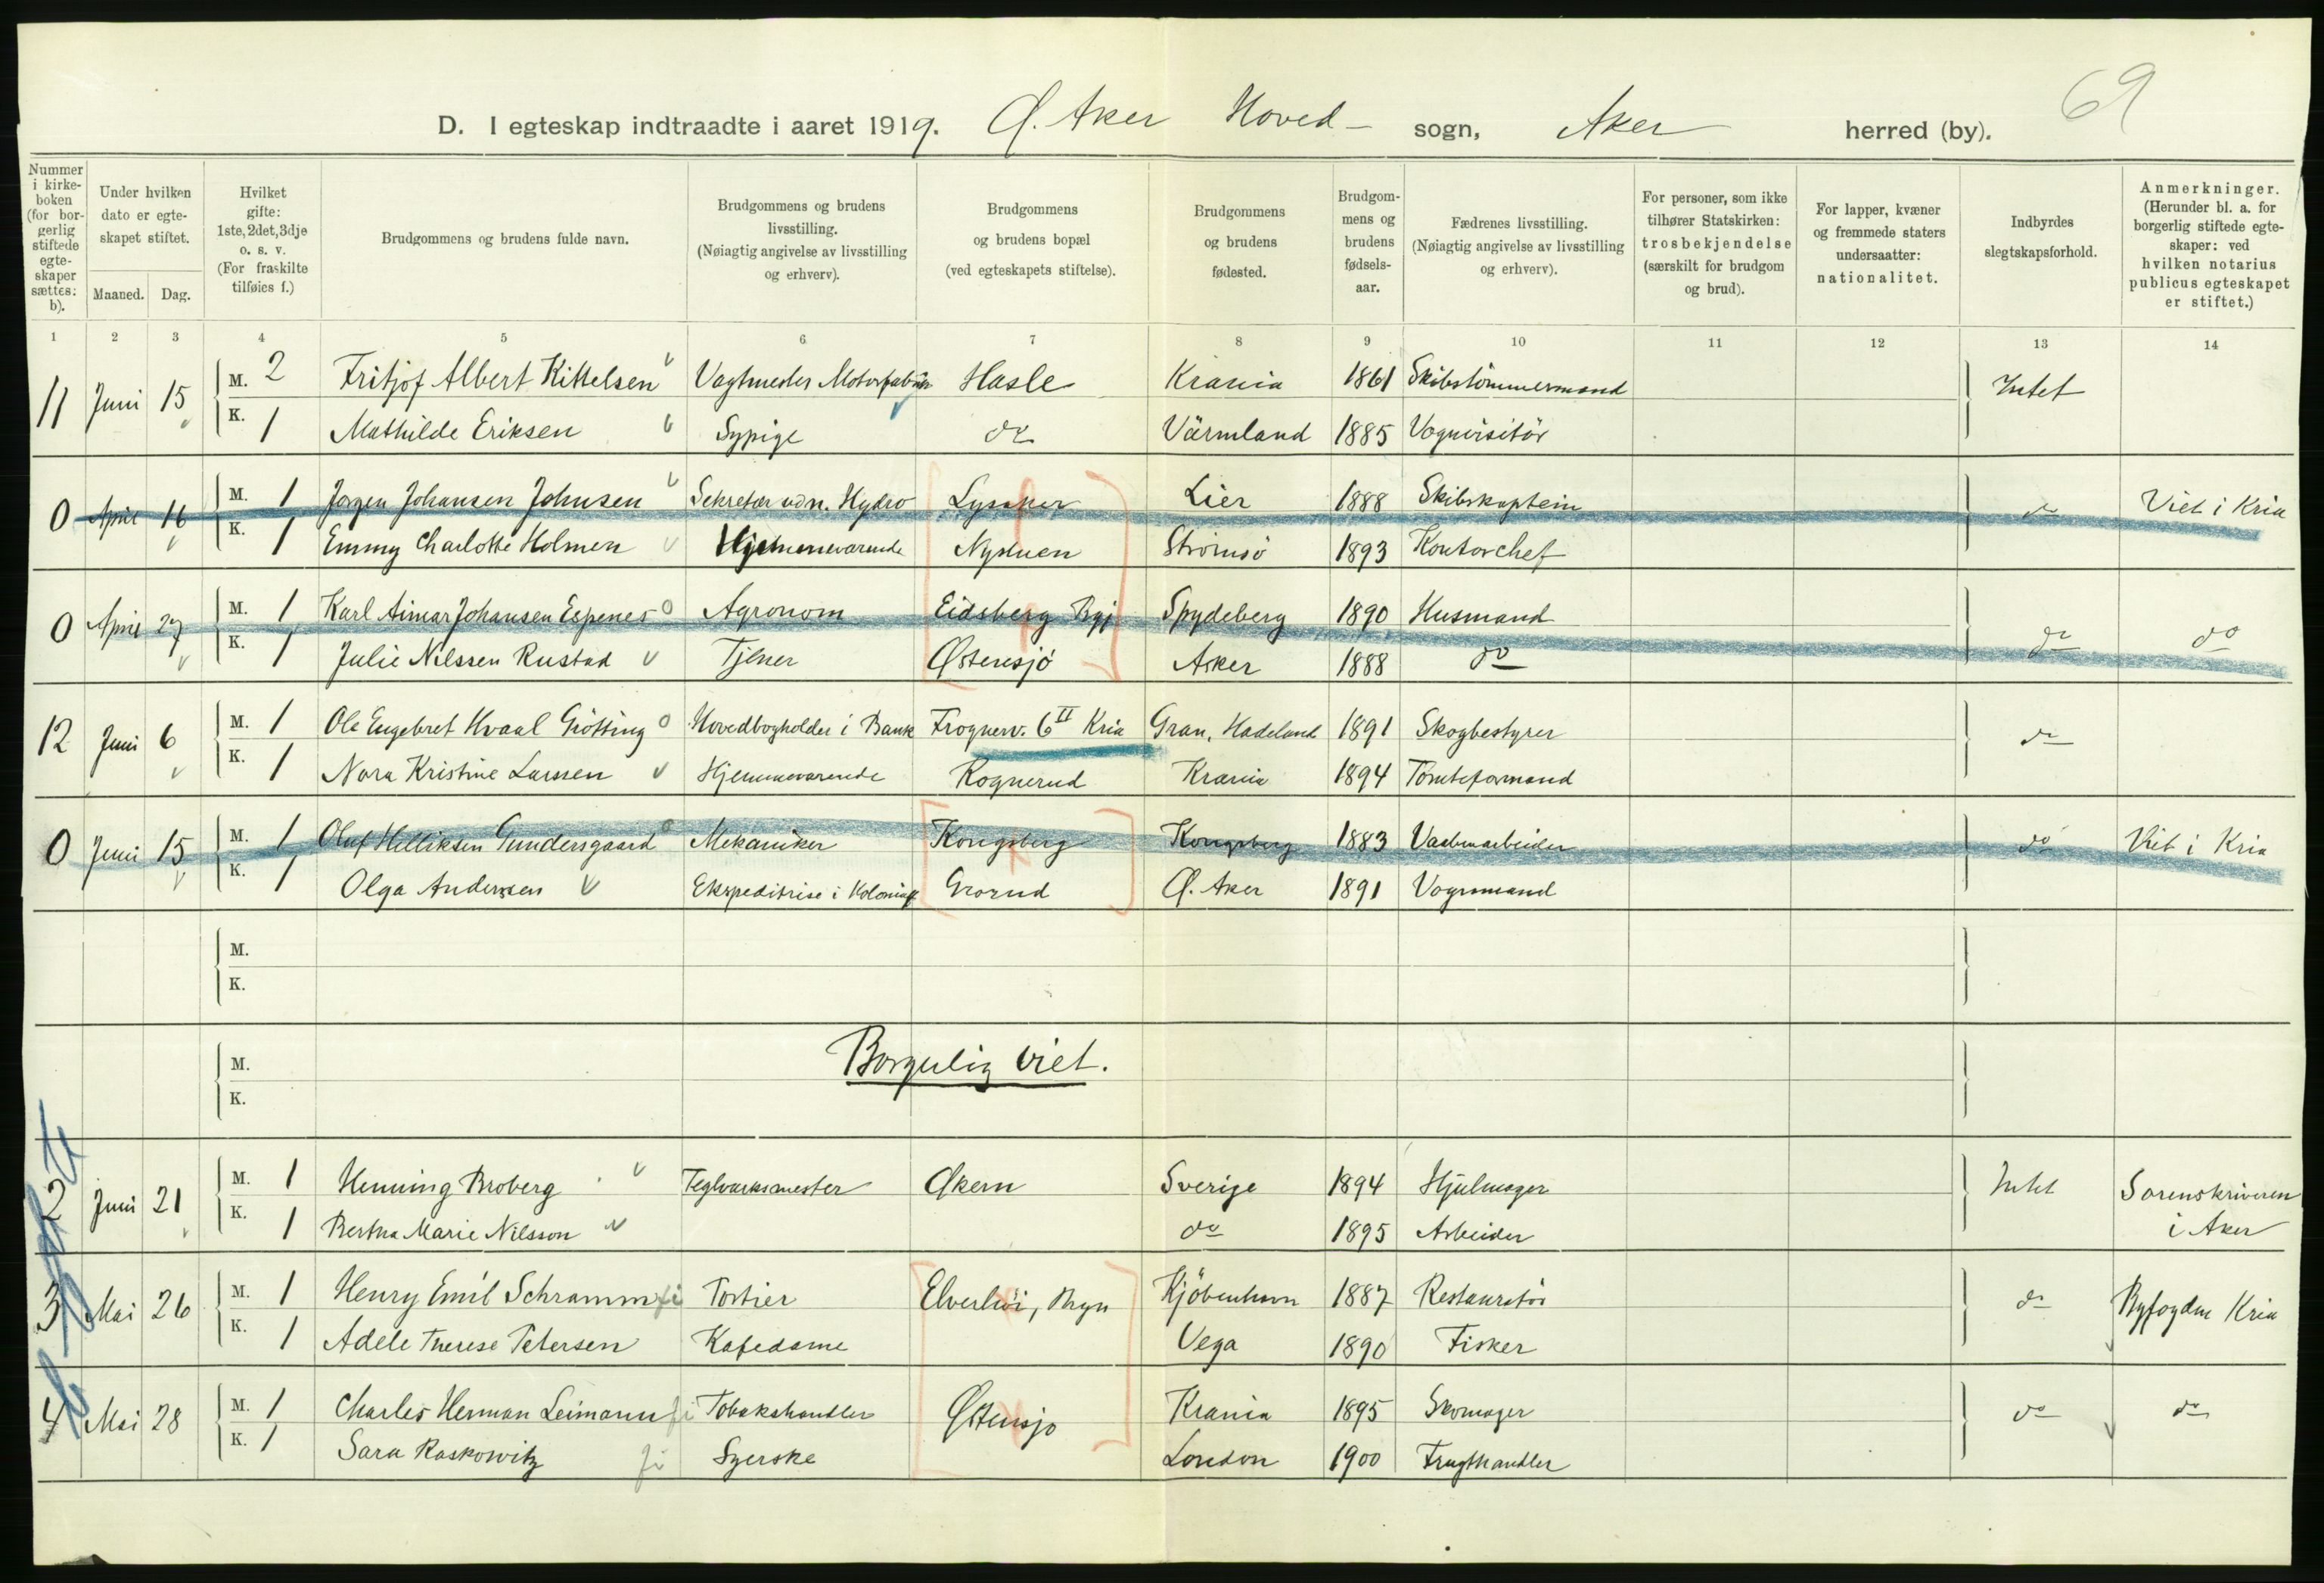 69
D. I egteskap indtraadte i aaret 1919. Ø. Aker Hoved- sogn, Aker herred (by).
Nummer i kirke- boken (for bor- gerlig stiftede egte- skaper sættes: b).
Under hvilken dato er egte- skapet stiftet.
Maaned. Dag.
Hvilket gifte: 1ste, 2det, 3dje o. s. v. (For fraskilte tilføies f.)
Brudgommens og brudens fulde navn.
Brudgommens og brudens livsstilling. (Nøiagtig angivelse av livsstilling og erhverv).
Brudgommens og brudens bopæl (ved egteskapets stiftelse).
Brudgommens og brudens fødested.
Brudgom- mens og brudens fødsels- aar.
Fædrenes livsstilling. (Nøiagtig angivelse av livsstilling og erhverv).
For personer, som ikke tilhører Statskirken: trosbekjendelse (særskilt for brudgom og brud).
For lapper, kvæner og fremmede staters undersaatter: nationalitet.
Indbyrdes slegtskapsforhold.
Anmerkninger. (Herunder bl. a. for borgerlig stiftede egte- skaper: ved hvilken notarius publicus egteskapet er stiftet.)
1 2 3 4 5 6 7 8 9 10 11 12 13 14
11 Juni 15 M. 2 Fritjof Albert Kittelsen Vagtmester Motorfabrik Hasle Krania 1861 Skibstömmermand Intet
K. 1 Mathilde Eriksen Sypige do Värmland 1885 Vognvisitör
0 April 16 M. 1 Jørgen Johansen Johnsen Sekretær v. n. Hydro Lysaker Lier 1888 Skibskaptein do Viet i Kria
K. 1 Emmy Charlotte Holmen Hjemmeværende Strömsö 1893 Kontorchef
0 April 27 M. 1 Karl Aimar Johansen Espenes Agronom Eidsberg Spydeberg 1890 Husmand do do
K. 1 Julie Nilssen Rustad Tjener Østensjö Asker 1888 do
12 Juni 6 M. 1 Ole Engebret Hvaal Götting Hovedbogholder i Bank Frognerv. 6 II Kria Gran, Hadeland 1891 Skogbestyrer do
K. 1 Nora Kristine Larssen Hjemmeværende Rognerud Krania 1894 Tomteformand
0 Juni 15 M. 1 Oluf Helliksen Gundersgaard Mekaniker Kongsberg Kongsberg 1883 Vaabenarbeider do Viet i Kria
K. 1 Olga Anderssen Ekspeditrise i Kolonialf Grorud Ø. Aker 1891 Vognmand
M.
K.
M. Borgerlig viet.
K.
2 Juni 21 M. 1 Henning Broberg Teglværksmester Økern Sverige 1894 Hjulmager Intet Sorenskriveren
K. 1 Bertha Marie Nilsson do 1895 Arbeider i Aker
3 Mai 26 M. 1 Henry Emil Schramm Portier Elverhöi, Bryn Kjöbenhavn 1887 Restauratör do Byfogden Kria
K. 1 Adele Therese Petersen Kafedame Vega 1890 Fisker
4 Mai 28 M. 1 Charles Herman Leimann Tobakshandler Østensjo Krania 1895 Skomager do do
K. 1 Sara Raskowitz Syerske London 1900 Frugthandler